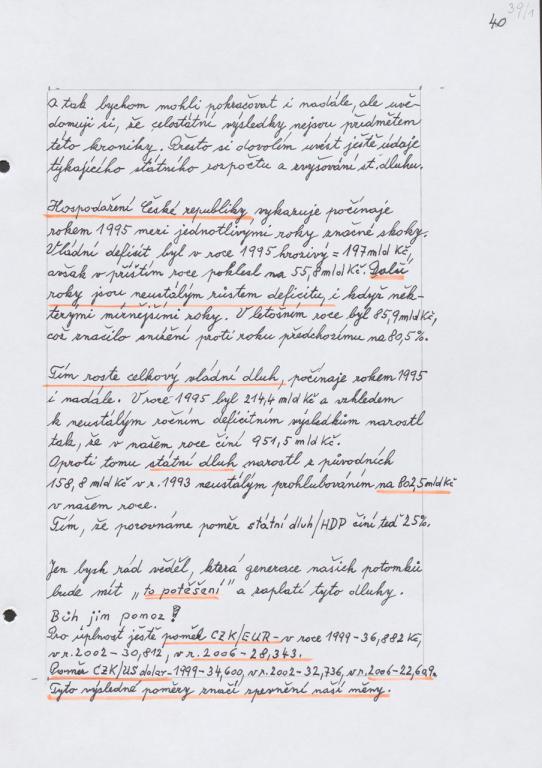 39/1
40
A tak bychom mohli pokračovat i nadále, ale uvě-
domuji si, že celostátní výsledky nejsou předmětem
této kroniky. Přesto si dovolím uvést ještě údaje
týkajícího státního rozpočtu a zvyšování st. dluhu.
Hospodaření České republiky vykazuje počínaje
rokem 1995 mezi jednotlivými roky značné skoky.
Vládní deficit byl v roce 1995 hrozivý = 197 mld Kč,
avšak v příštím roce poklesl na 55,8 mld Kč. Další
roky jsou neustálým růstem deficitu, i když něk-
terými mírnějšími roky. V letošním roce byl 85,9 mld Kč,
což značilo snížení proti roku předchozímu na 80,5%.
Tím roste celkový vládní dluh, počínaje rokem 1995
i nadále. V roce 1995 byl 214,4 mld Kč a vzhledem
k neustálým ročním deficitním výsledkům narostl
tak, že v našem roce činí 951,5 mld Kč.
Oproti tomu státní dluh narostl z původních
158,8 mld Kč v r. 1993 neustálým prohlubováním na 802,5 mld Kč
v našem roce.
Tím, že porovnáme poměr státní dluh/HDP činí teď 25%.
Jen bysh rád věděl, která generace našich potomků
bude mít „to potěšení" a zaplatí tyto dluhy.
Bůh jim pomoz!
Pro úplnost ještě poměk CZK/EUR - v roce 1999-36,882 Kč,
v r. 2002 - 30,812, v r. 2006 - 28,343.
Poměr CZK/US dolar - 1999-34,600, v r. 2002-32,736, v r. 2006-22,609.
Tyto výsledné poměry značí zpevnění naší měny.